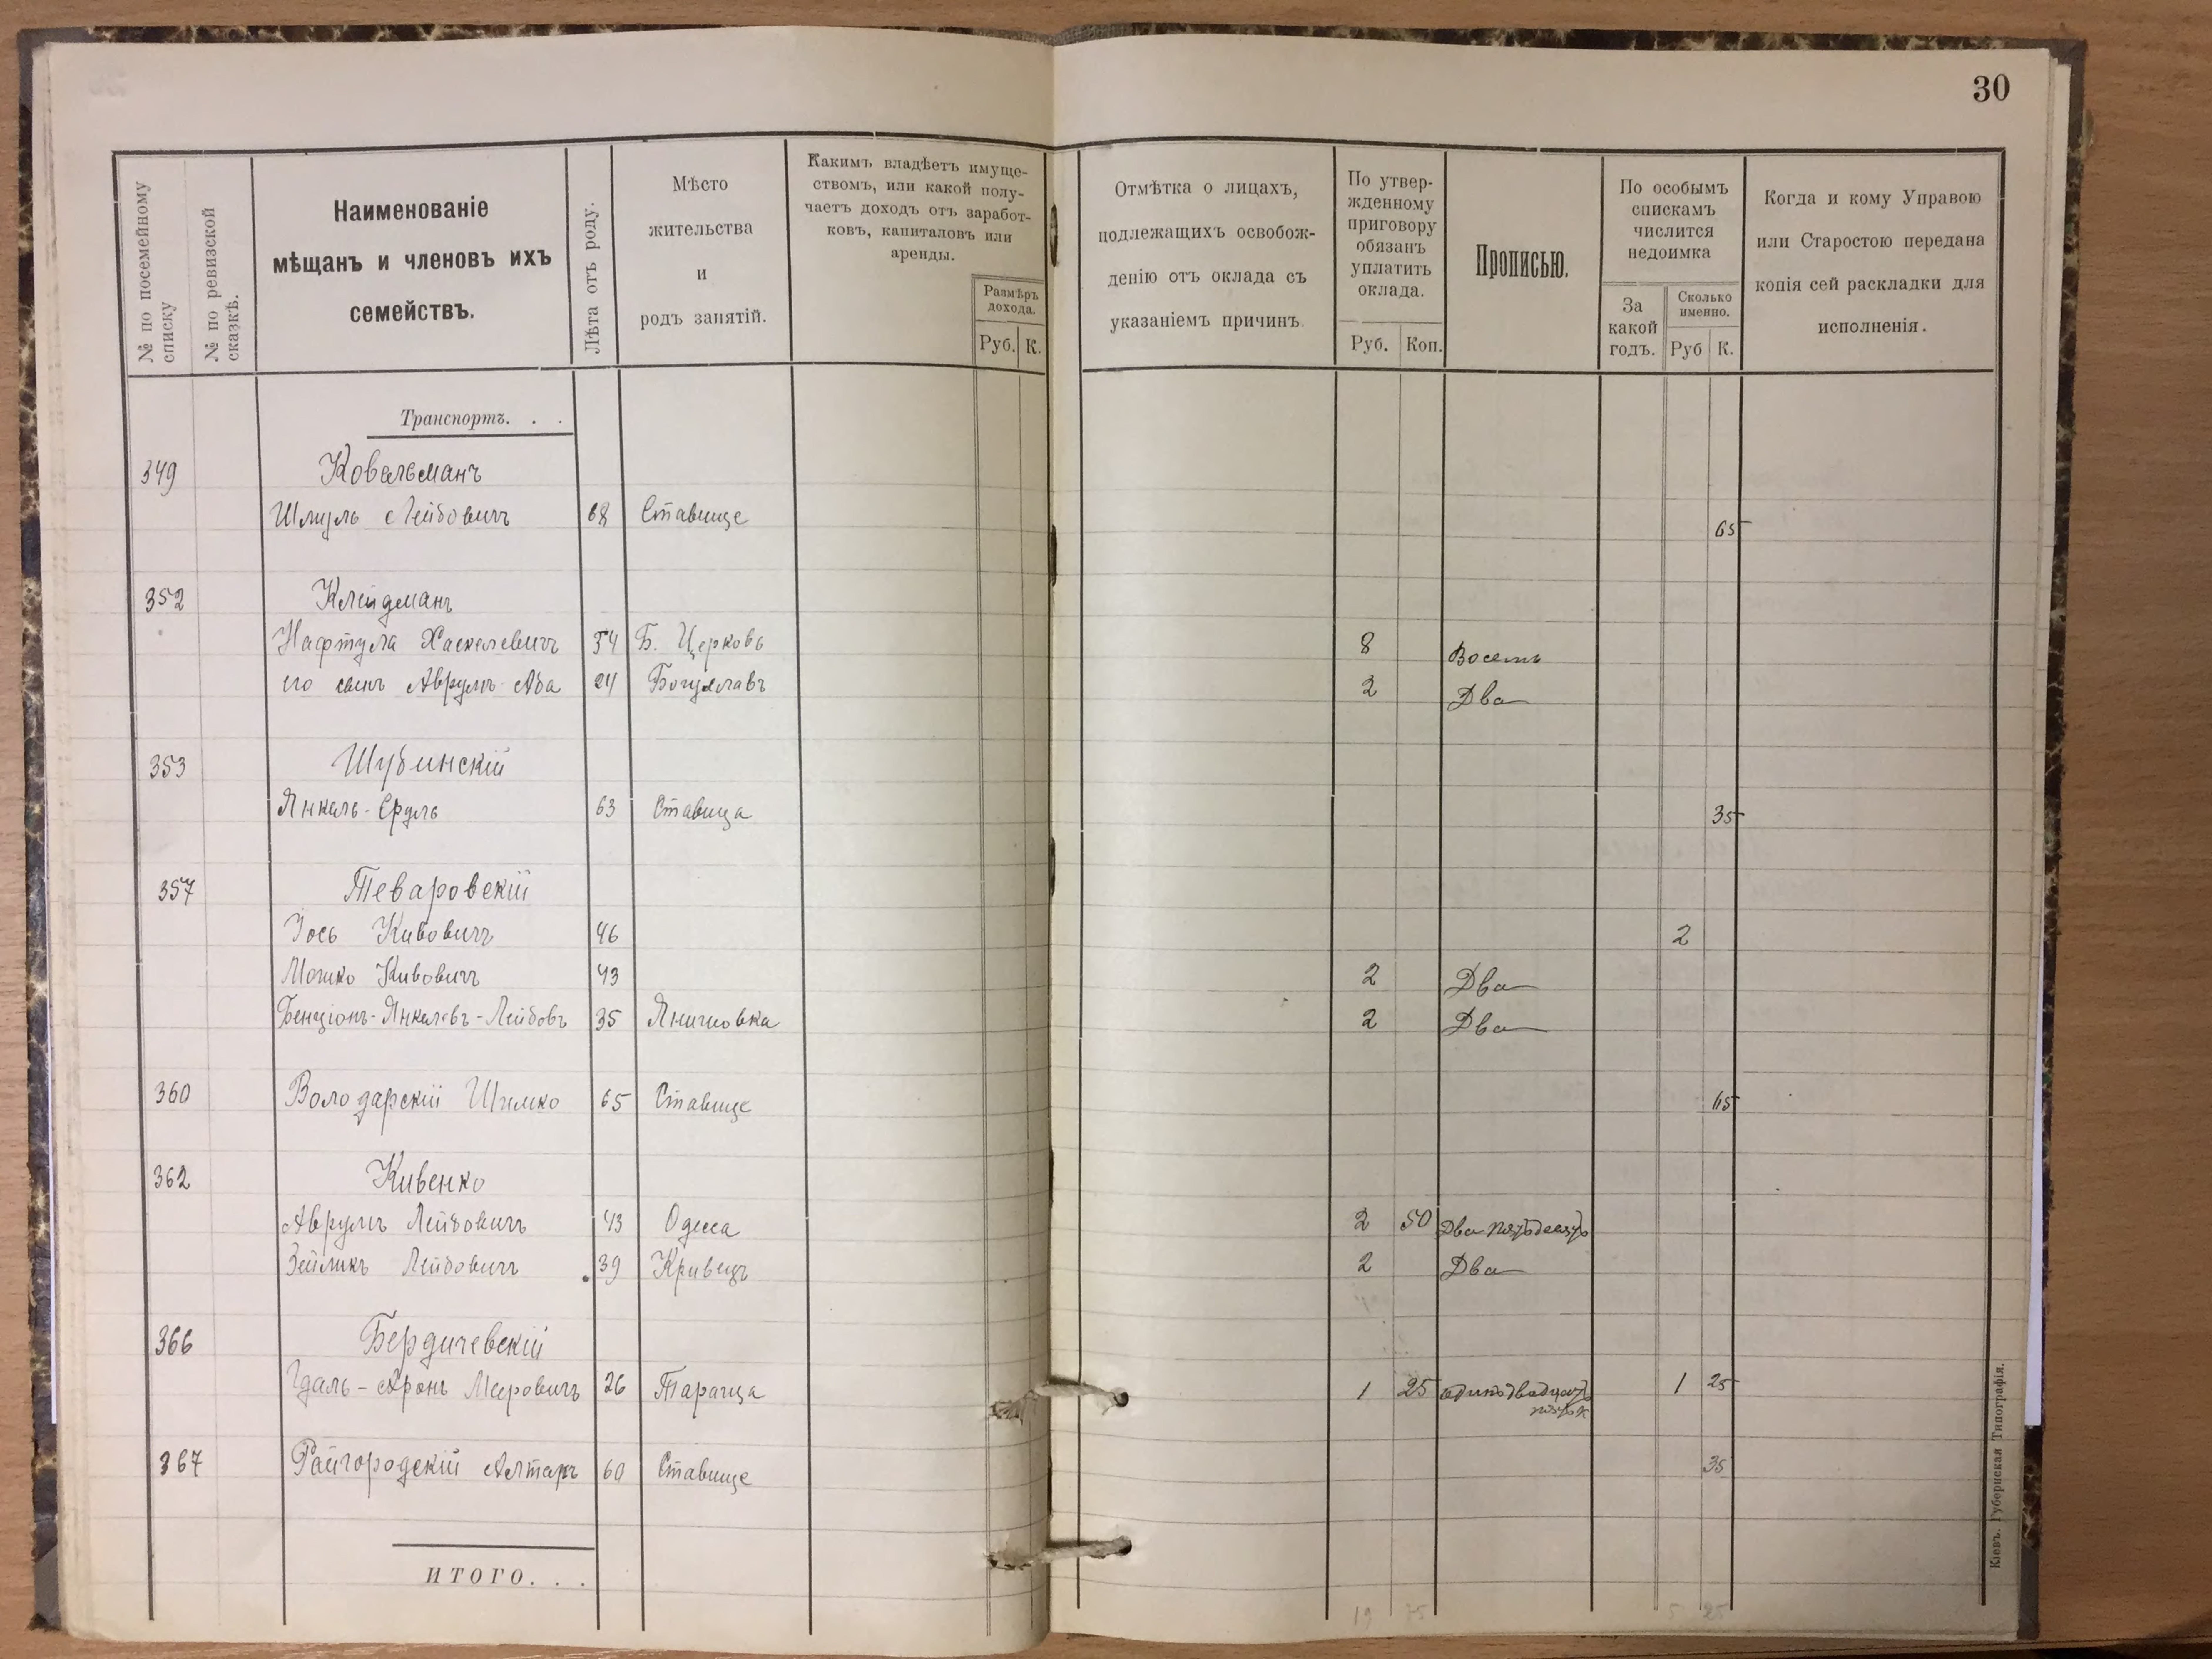 30
№ по посемейному списку
№ по ревизской сказкѣ.
Наименованіе
мѣщанъ и членовъ ихъ
семействъ.
Лѣта отъ роду.
Мѣсто
жительства
и
родъ занятій.
Какимъ владѣетъ имуще-
ствомъ, или какой полу-
чаетъ доходъ отъ заработ-
ковъ, капиталовъ или
аренды.
Размѣръ
дохода.
Руб. К.
Отмѣтка о лицахъ,
подлежащихъ освобож-
денію отъ оклада съ
указаніемъ причинъ.
По утвер-
жденному
приговору
обязанъ
уплатить
оклада.
Руб. Коп.
Прописью.
По особымъ
спискамъ
числится
недоимка
За
какой
годъ.
Сколько
именно.
Руб К.
Когда и кому Управою
или Старостою передана
копія сей раскладки для
исполненія.
Транспортъ. . .
349 Ковальманъ
Шмуль Лейбовичъ 68 Ставище 65
352 Клейдманъ
Нафтула Хаскелевичъ 54 Б. Церковь 8 Восемь
его сынъ Аврумъ-Аба 24 Богуславъ 2 Два
353 Шубинскій
Янкель-Сруль 63 Ставища 35
357 Теваровскій
Іось Кивовичъ 46 2
Мошко Кивовичъ 43 2 Два
Бенціонъ-Янкелевъ-Лейбовъ 35 Янишовка 2 Два
360 Володарскій Шимко 65 Ставище 65
362 Кивенко
Аврумъ Лейбовичъ 43 Одесса 2 50 Два пятьдесятъ
Зейликъ Лейбовичъ 39 Кривецъ 2 Два
366 Бердичевскій
Идаль-Аронъ Мееровичъ 26 Тараща 1 25 одинъ двадцать 1 25
пять к
367 Райгородскій Алтеръ 60 Ставище 35
ИТОГО. . .
19 75 5 25
Кіевъ. Губернская Типографія.